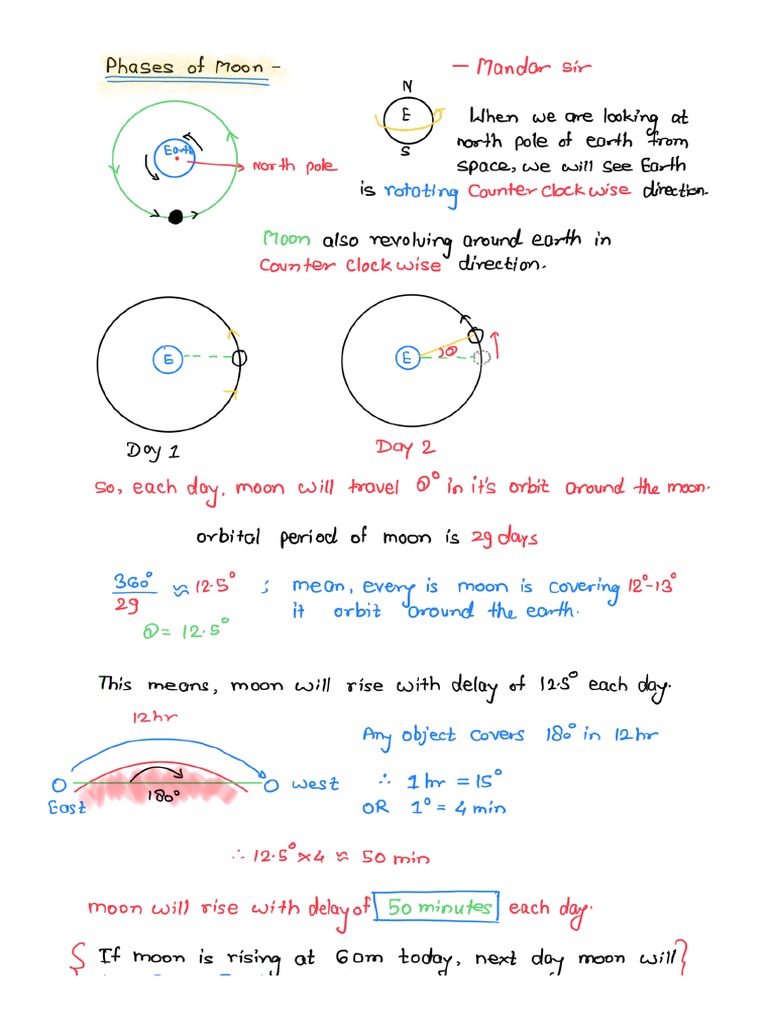 Phases of Moon -
- Mandar sir
N
E
S
Earth
North pole
When we are looking at
north pole of earth from
space, we will see Earth
is rotating Counter Clockwise direction.
Moon also revolving around earth in
Counter Clockwise direction.
E
E
θ
Day 1
Day 2
So, each day, moon will travel θ° in it's orbit around the moon.
orbital period of moon is 29 days
360°
29
≈ 12.5° ; mean, every is moon is covering 12°-13°
it orbit around the earth.
θ = 12.5°
This means, moon will rise with delay of 12.5° each day.
12hr
Any object covers 180° in 12hr
East
180°
West
∴ 1hr = 15°
OR 1° = 4 min
∴ 12.5° x 4 ≈ 50 min
moon will rise with delay of 50 minutes each day.
{ If moon is rising at 6am today, next day moon will }